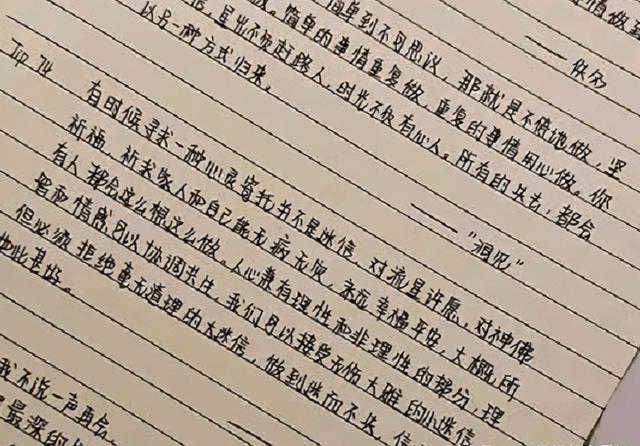 情做到
简单到不可思议，那就是不借地做，坚
做。简单的事情重复做，重复的事情用心做。你
星光不负赶路人，时光不负有心人。所有的失去，都会
以另一种方式归来。
—— 佚名
Top 74
有时候寻求一种心灵寄托并不是迷信，对流星许愿，对神佛
祈福，祈求家人和自己能无病无灾，永远幸福平安，大概所
有人都会这么想这么做。人心兼有理性和非理性的部分，理
智和情感可以协调共生，我们可以接受无伤大雅的小迷信
但必须拒绝毫无道理的大迷信，做到迷而不失，信
——“湘见”
我不说一声再会
最深的